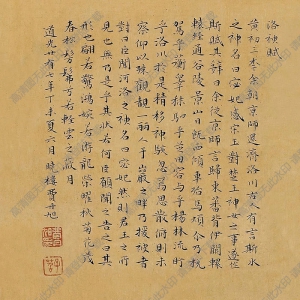 洛神賦
黃初三年余朝京師還濟洛川古人有言斯水
之神名曰宓妃感宋玉對楚王神女之事遂作
斯賦其辭曰余從京師言歸東藩背伊闕越
轘轅經通谷陵景山日既西傾車殆馬煩尒乃稅
駕乎蘅皋秣駟乎芝田容與乎楊林流眄
乎洛川於是精移神駭忽焉思散俯則未
察仰以殊觀覩一麗人于巖之畔乃援御者
對曰臣聞河洛之神名曰宓妃然則君王之所
見也無乃是乎其狀若何臣願聞之余告之曰其
形也翩若驚鴻婉若游龍榮曜秋菊華茂
春松髣髴兮若輕雲之蔽月
道光廿有七年丁未夏六月